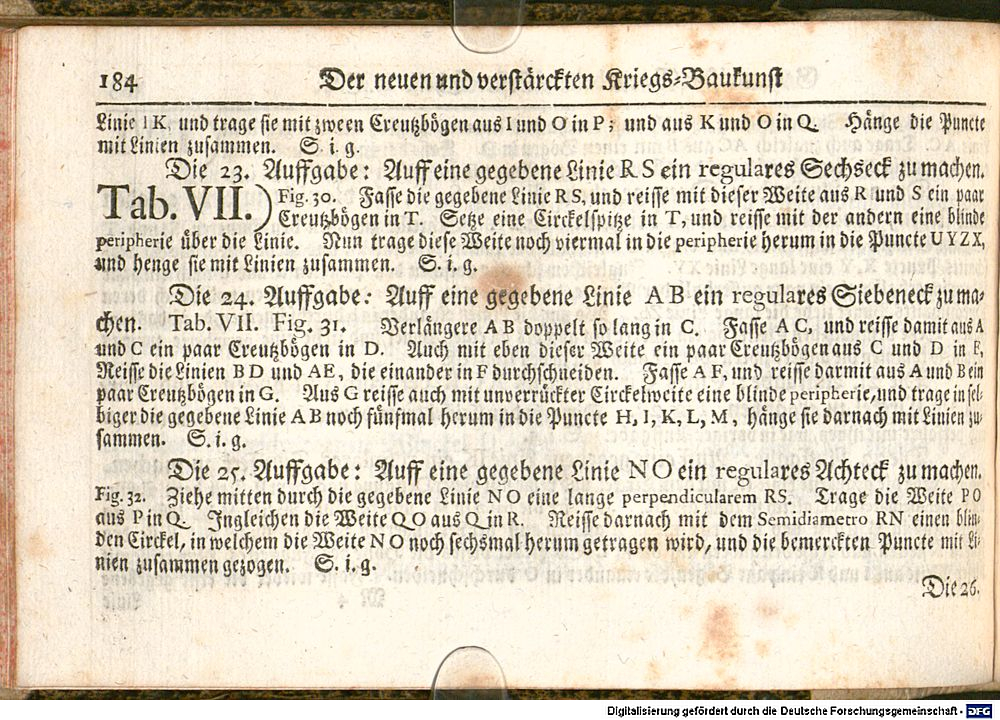 184 Der neuen und verstärckten Kriegs-Baukunst
Linie I K, und trage sie mit zween Creutzbögen aus I und O in P; und aus K und O in Q. Hänge die Puncte
mit Linien zusammen. S. i. g.
Die 23. Auffgabe: Auff eine gegebene Linie R S ein regulares Sechseck zu machen.
Tab. VII.) Fig. 30. Fasse die gegebene Linie RS, und reisse mit dieser Weite aus R und S ein paar
Creutzbögen in T. Setze eine Circkelspitze in T, und reisse mit der andern eine blinde
peripherie über die Linie. Nun trage diese Weite noch viermal in die peripherie herum in die Puncte U Y Z X,
und henge sie mit Linien zusammen. S. i. g.
Die 24. Auffgabe: Auff eine gegebene Linie A B ein regulares Siebeneck zu ma-
chen. Tab. VII. Fig. 31. Verlängere A B doppelt so lang in C. Fasse A C, und reisse damit aus A
und C ein paar Creutzbögen in D. Auch mit eben dieser Weite ein paar Creutzbögen aus C und D in E,
Reisse die Linien B D und A E, die einander in F durchschneiden. Fasse A F, und reisse darmit aus A und B ein
paar Creutzbögen in G. Aus G reisse auch mit unverrückter Circkelweite eine blinde peripherie, und trage in sel-
biger die gegebene Linie A B noch fünfmal herum in die Puncte H, I, K, L, M, hänge sie darnach mit Linien zu-
sammen. S. i. g.
Die 25. Auffgabe: Auff eine gegebene Linie N O ein regulares Achteck zu machen.
Fig. 32. Ziehe mitten durch die gegebene Linie N O eine lange perpendicularem RS. Trage die Weite P O
aus P in Q. Ingleichen die Weite Q O aus Q in R. Reisse darnach mit dem Semidiametro RN einen blin-
den Circkel, in welchem die Weite N O noch sechsmal herum getragen wird, und die bemerckten Puncte mit Li-
nien zusammen gezogen. S. i. g.
Die 26.
Digitalisierung gefördert durch die Deutsche Forschungsgemeinschaft - DFG